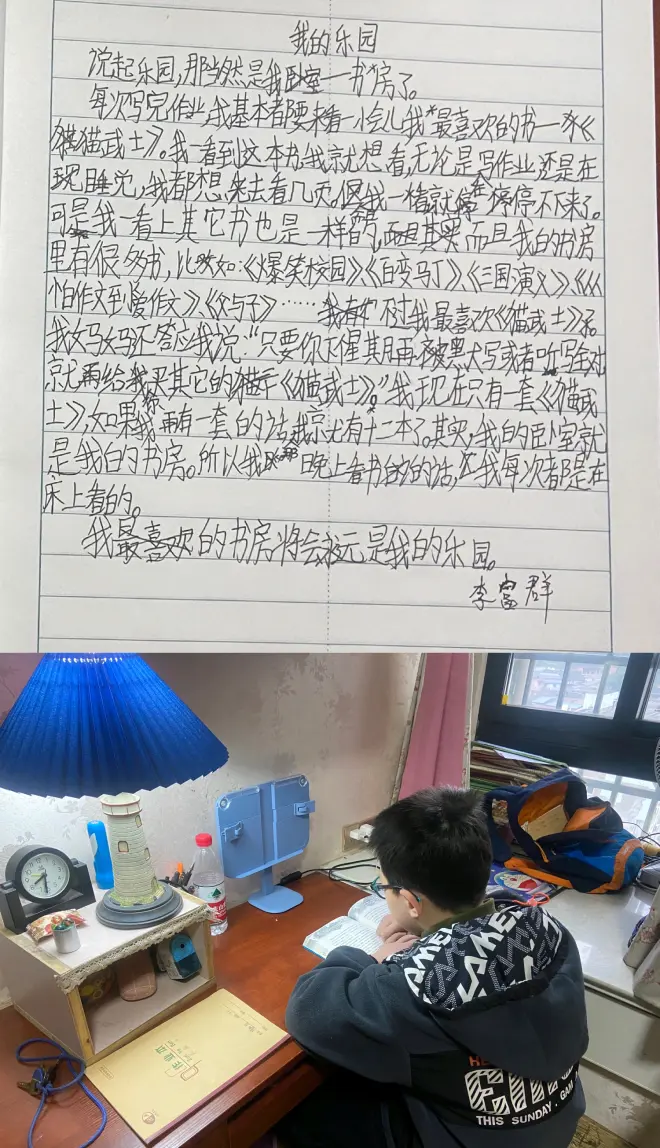 我的乐园
说起乐园,那当然是我卧室一书房了。
每次写完作业,我基本都要来看一小会儿我最喜欢的书一《
猫武士》。我一看到这本书,我就想看,无论是写作业还是在
现睡觉,我都想来去看几页。但我一看就停停不下来了。
可是我一看上其它书也是一样的,而且我的书房
里有很多书,比如:《爆笑校园》、《百变马丁》、《三国演义》、《从
怕作文到爱作文》、《父与子》……不过我最喜欢《猫武士》了。
我妈妈还答应我说:“只要你下星期再不被黑犬写或者听写全对
就再给我买其它的《猫武士》。”我现在只有一套《猫武
士》,如果我再有一套的话,我就有十二本了。其实,我的卧室就
是我的书房。所以我晚上看书的话,我每次都是在
床上看的。
我最喜欢的书房将会永元是我的乐园。
李富群
THIS SUNDAY . GAM